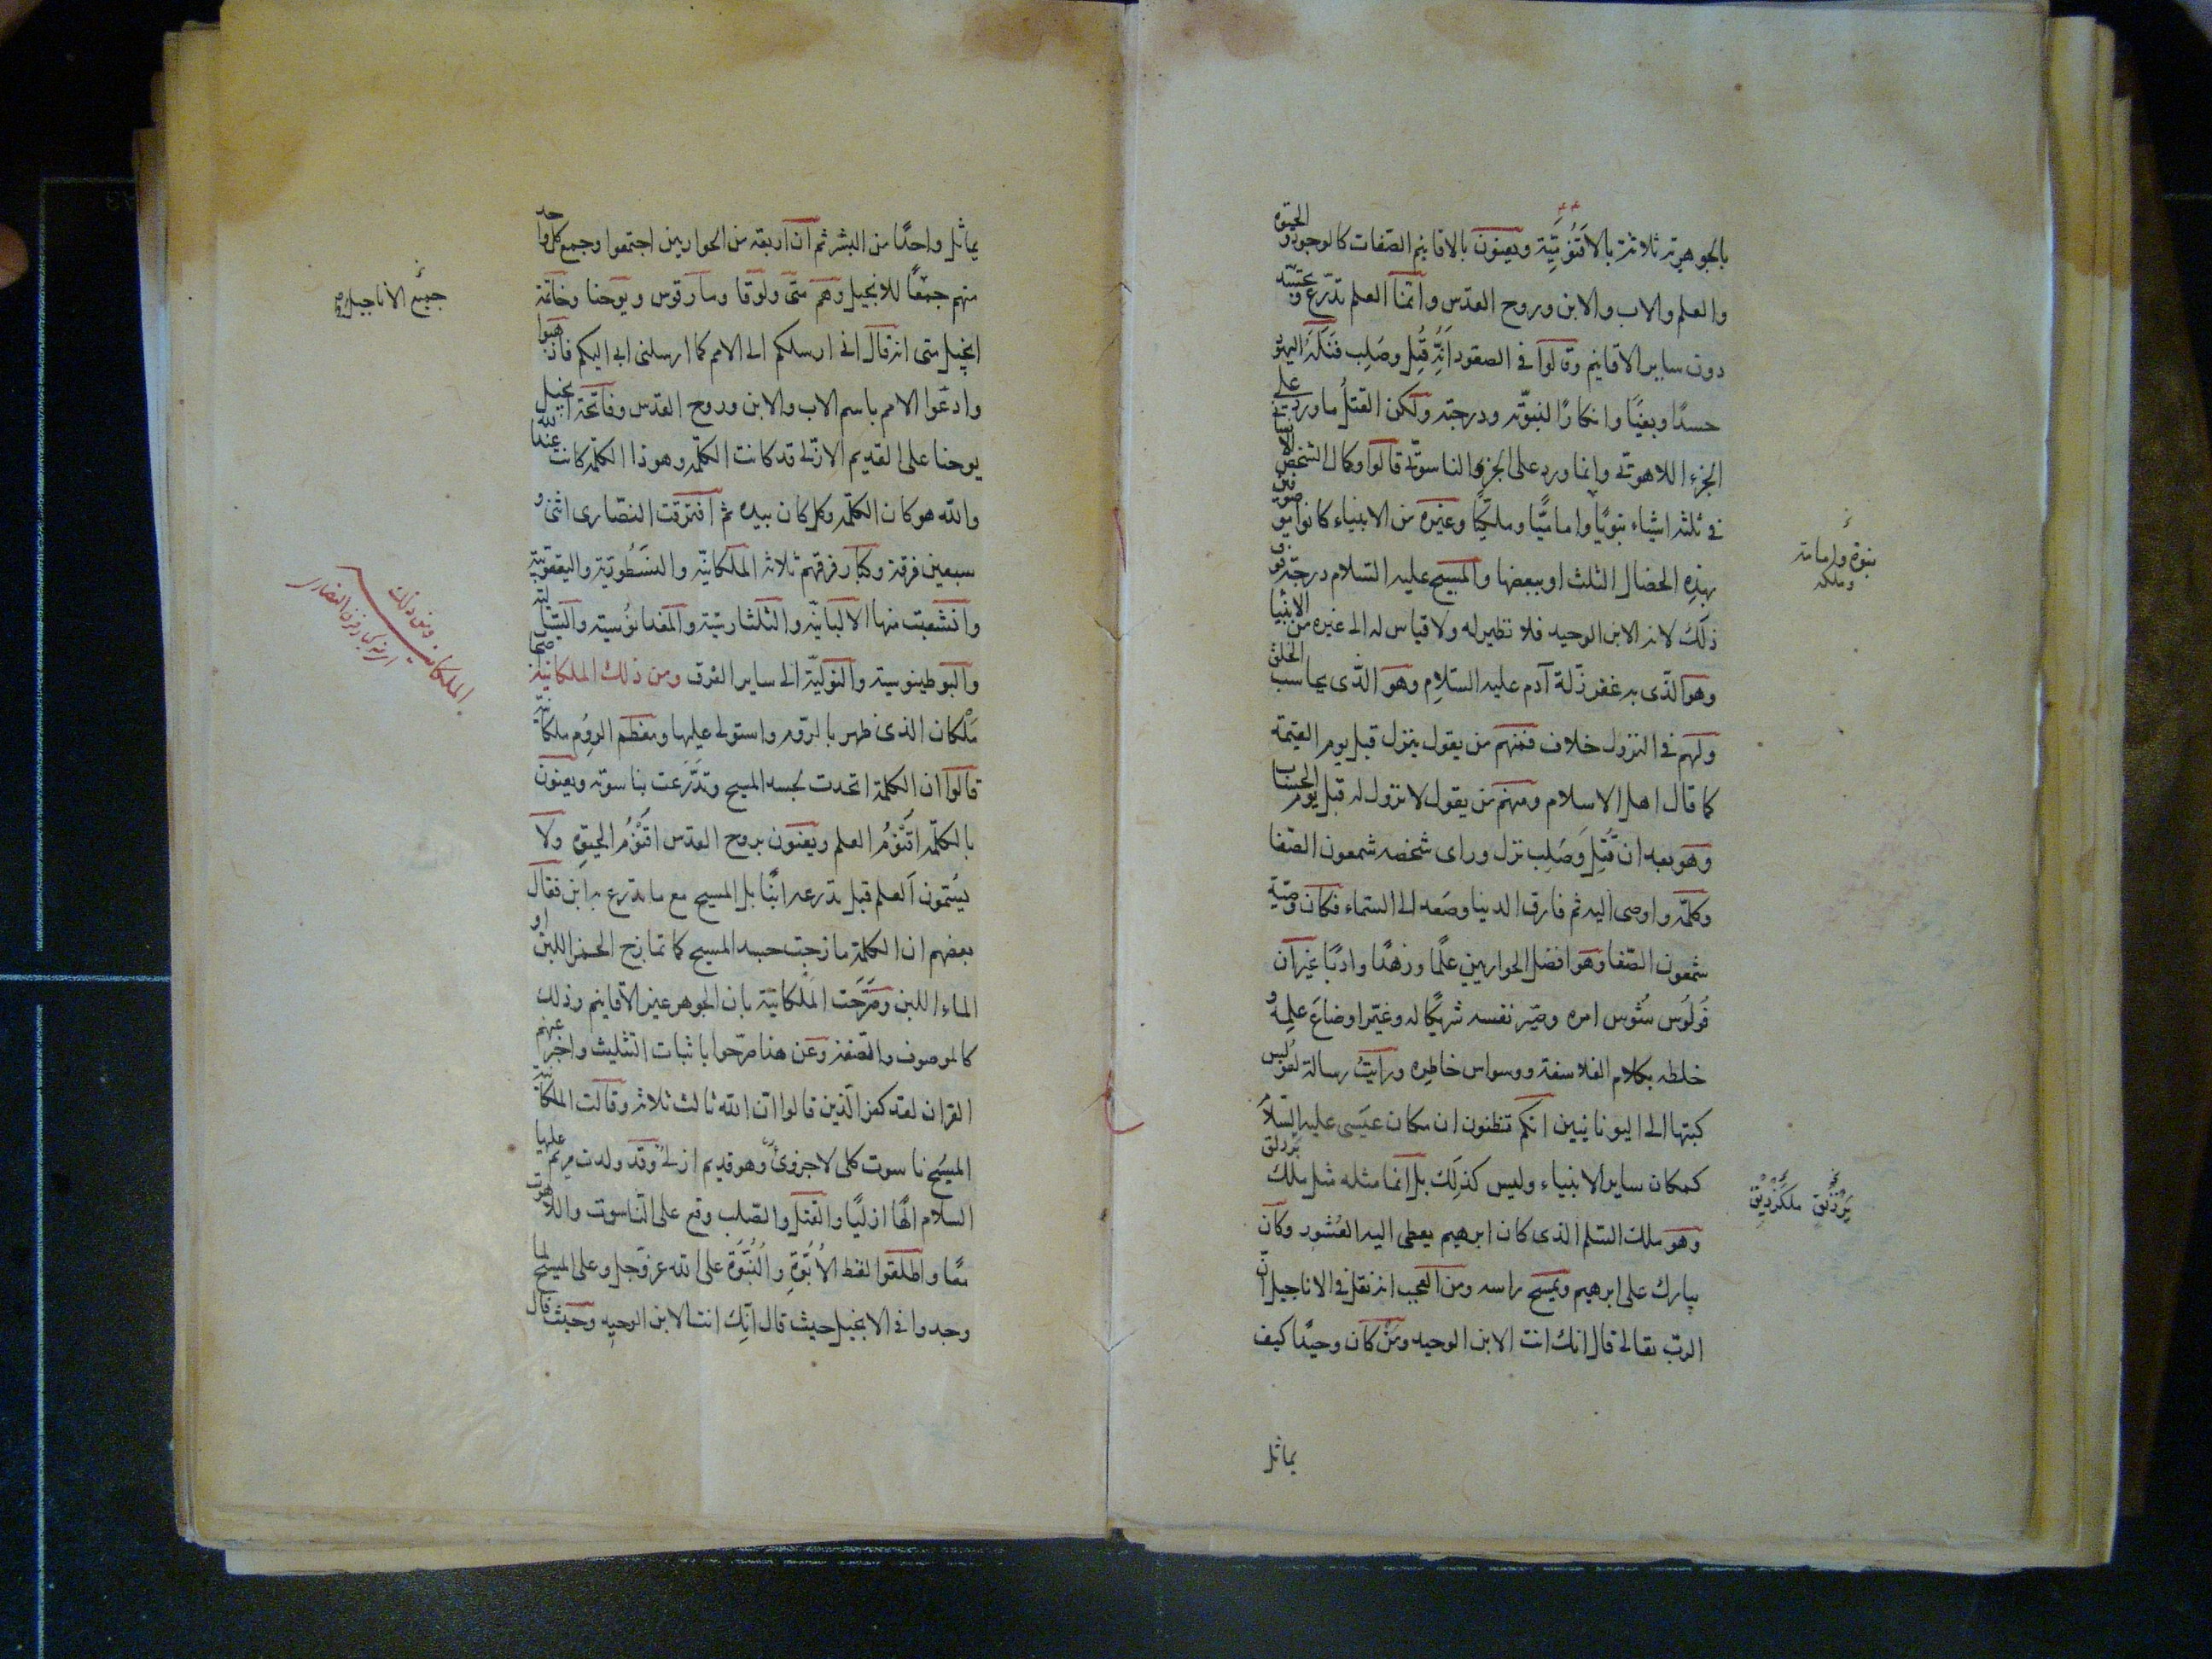 بالجوهرية ثلاثة بالاقنومية ويعنون بالاقانيم الصفات كالوجود والحيوة
والعلم والاب والابن وروح القدس وانما العلم تدرع وتجسد
دون ساير الاقانيم وقالوا في الصعود انه قُتِل وصُلِب قتله اليهود
حسدًا وبغيًا وانكارًا لنبوّته ودرجته ولكن القتل ما ورد على
الجزء اللاهوتي وانما ورد على الجزء الناسوتي قالوا وكمال الشخص الانساني
في ثلثه اشياء نبويًا واماميًّا وملكيًّا وغيره من الانبياء كانوا موصوفين
بهذه الخصال الثلث او ببعضها والمسيح عليه السلام درجته فوق
ذلك لانه الابن الوحيد فلا نظير له ولا قياس له الى غيره من الانبيا
وهو الذى به غفر زلّة آدم عليه السّلام وهو الذى يحاسب الخلق
ولهم في النزول خلاف فمنهم من يقول ينزل قبل يوم القيمة
كما قال اهل الاسلام ومنهم من يقول لا نزول له قبل يوم الحساب
وهو بعد ان قُتِل وَصُلِب نزل وراى شخصه شمعون الصّفا
وكلّمه واوصى اليه ثم فارق الدنيا وصَعد الى السّماء فكان وصيّه
شمعون الصّفا وهو افضل الحواريين علمًا وزهدًا وادبًا غير ان
فولُوس شوّس امره وصيّر نفسه شريكًا له وغيّر اوضاع علمه و
خلطه بكلام الفلاسفة ووسواس خاطِره ورايتُ رسالة لفولُس
كتبها الى اليونانيين انكم تظنون ان مكان عيسى عليه السّلا
كمكان ساير الانبياء وليس كذلِك بل انما مثله مثل ملك يزدلق
وهو ملك السّلم الذى كان ابرهيم يعطى اليه العُشور وكان
يبارك على ابرهيم ويمسح راسه ومن العجب انه نقل في الاناجيل ان
الرب تعالى قال انك انت الابن الوحيد ومَنْ كان وحيدًا كيف
يماثل
نبوة وامامة
وملكه
يَزْدُلِقِ ملكَزْدِيْقِ
يماثل واحدًا من البشر ثم ان اربعة من الحواريين اجتمعوا وجمع كل واحد
منهم جمعًا للانجيل وهم متى ولوقا ومارقوس ويوحنا وخاتمة
انجيل متى انه قال انى ارسلكم الى الامم كما ارسلنى ابى اليكم فاذهبوا
وادعوا الامم باسم الاب والابن وروح القدس وفاتحة انجيل
يوحنا على القديم الازلى قد كانت الكلمة وهوذا الكلمة كانت عند الله
والله هو كان الكلمة وكل كان بيده ثم افترقت النّصارى اثنى و
سبعين فرقة وكبار فرقهم ثلاثه الملكانيّة والنسَطُوريّة واليعقوبيّة
وانشعبت منها الاليانيّة والثلثارسيّة والمقدانوُسية والسّبالية
والبوطينوسية والبوليّة الى ساير الفرق ومن ذلك الملكانيّة اصحاب
مَلْكان الذى ظهر بالرّوم واستولى عليها ومعظم الروُم ملكانية
قالوا ان الكلمة اتحدت بجسد المسيح وتدَّرَعت بناسوته ويعنون
بالكلمة اقنُوم العلم ويعنون بروح القدس اقنُوم الحيوة ولا
يُسمّون العلم قبل تدرعه ابنًا بل المسيح مع ما تدرع به ابن فقال
بعضهم ان الكلمة مازجت جسد المسيح كما تمازج الخمر اللبن او
الماء اللبن وصَرَّحَت المَلْكانيّة بان الجوهر غير الاقانيم وذلك
كالموصوف والصّفة وعن هذا صرّحوا باثبات التثليث واخبر عنهم
القران لقد كفر الّذين قالوا ان الله ثالث ثلاثه وقالت الملكانية
المسيح ناسوت كلى لا جزوىّ وهو قديم ازلى وقد ولدت مريم عليها
السلام الهًا ازليًا والقتل والصّلب وقع على النّاسوت واللاهوت
معًا واطلقوا لفظ الاُبُوّةِ والبُنُوَّة على الله عز وجل وعلى المسيح لما
وجدوا في الانجيل حيث قال انِّك انت الابن الوحيد وحيث قال
جميع الاناجيل
ومن ذلك
الملكانية